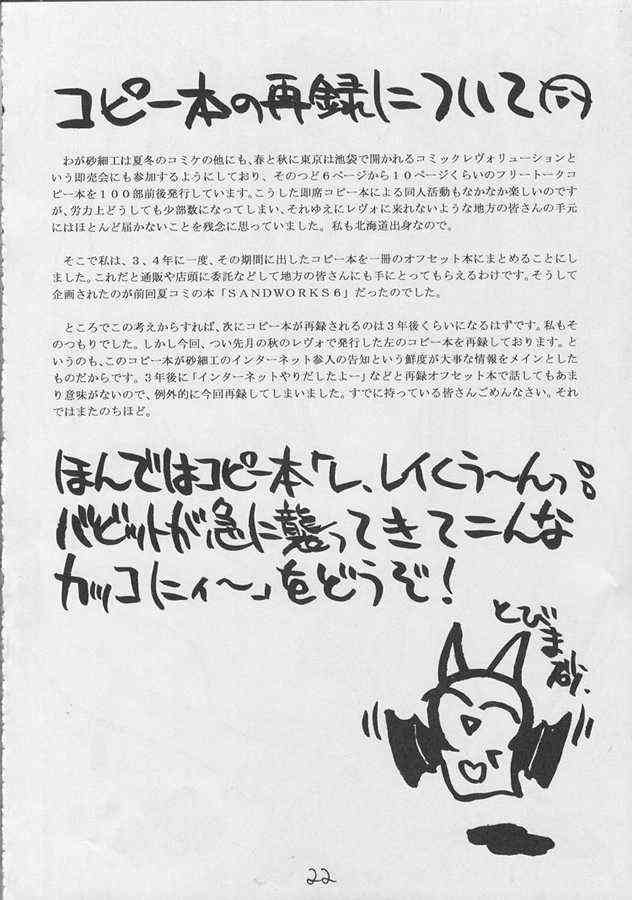 コピー本の再録について
わが砂細工は夏冬のコミケの他にも、春と秋に東京は池袋で開かれるコミックレヴォリューションと
いう即売会にも参加するようにしており、そのつど６ページから１０ページくらいのフリートークコ
ピー本を１００部前後発行しています。こうした即席コピー本による同人活動もなかなか楽しいのです
が、労力上どうしても少部数になってしまい、それゆえにレヴォに来れないような地方の皆さんの手元
にはほとんど届かないことを残念に思っていました。私も北海道出身なので。
そこで私は、３、４年に一度、その期間に出したコピー本を一冊のオフセット本にまとめることにし
ました。これだと通販や店頭に委託などして地方の皆さんにも手にとってもらえるわけです。そうして
企画されたのが前回夏コミの本「ＳＡＮＤＷＯＲＫＳ６」だったのでした。
ところでこの考えからすれば、次にコピー本が再録されるのは３年後くらいになるはずです。私もそ
のつもりでした。しかし今回、つい先月の秋のレヴォで発行した左のコピー本を再録しております。と
いうのも、このコピー本が砂細工のインターネット参入の告知という鮮度が大事な情報をメインとした
ものだからです。３年後に「インターネットやりだしたよー」などと再録オフセット本で話してもあま
り意味がないので、例外的に今回再録してしまいました。すでに持っている皆さんごめんなさい。それ
ではまたのちほど。
ほんではコピー本「レ、レイくう〜んっ
バビットが急に襲ってきてこんな
カッコにィ〜」をどうぞ！
とびま砂
22